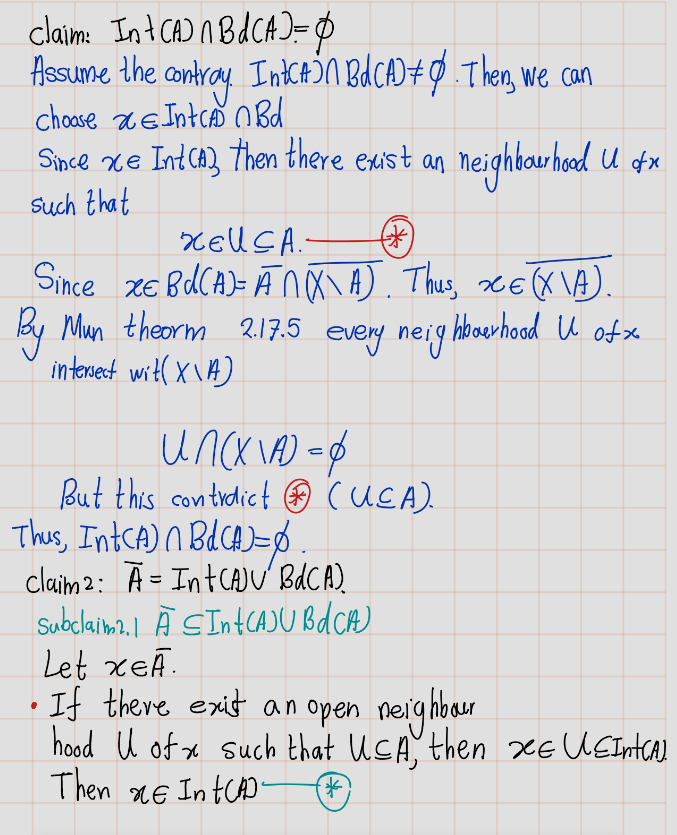 claim: Int(A)∩Bd(A)=ϕ
Assume the contray. Int(A)∩Bd(A)≠ϕ. Then, we can
choose x∈Int(A)∩Bd
Since x∈Int(A), Then there exist an neighbourhood U of x
such that
x∈U⊆A. ⊛
Since x∈Bd(A)=A̅∩\overline{(X\A)}. Thus, x∈\overline{(X\A)}.
By Mun theorm 2.17.5 every neighbourhood U of x
intersect wit(X\A)
U∩(X\A)=ϕ
But this contrdict ⊛ (U⊆A).
Thus, Int(A)∩Bd(A)=ϕ.
claim2: A̅=Int(A)∪Bd(A).
Subclaim2.1 A̅⊆Int(A)∪Bd(A)
Let x∈A̅.
• If there exist an open neighbour
hood U of x such that U⊆A, then x∈U⊆Int(A).
Then x∈Int(A) ⊛